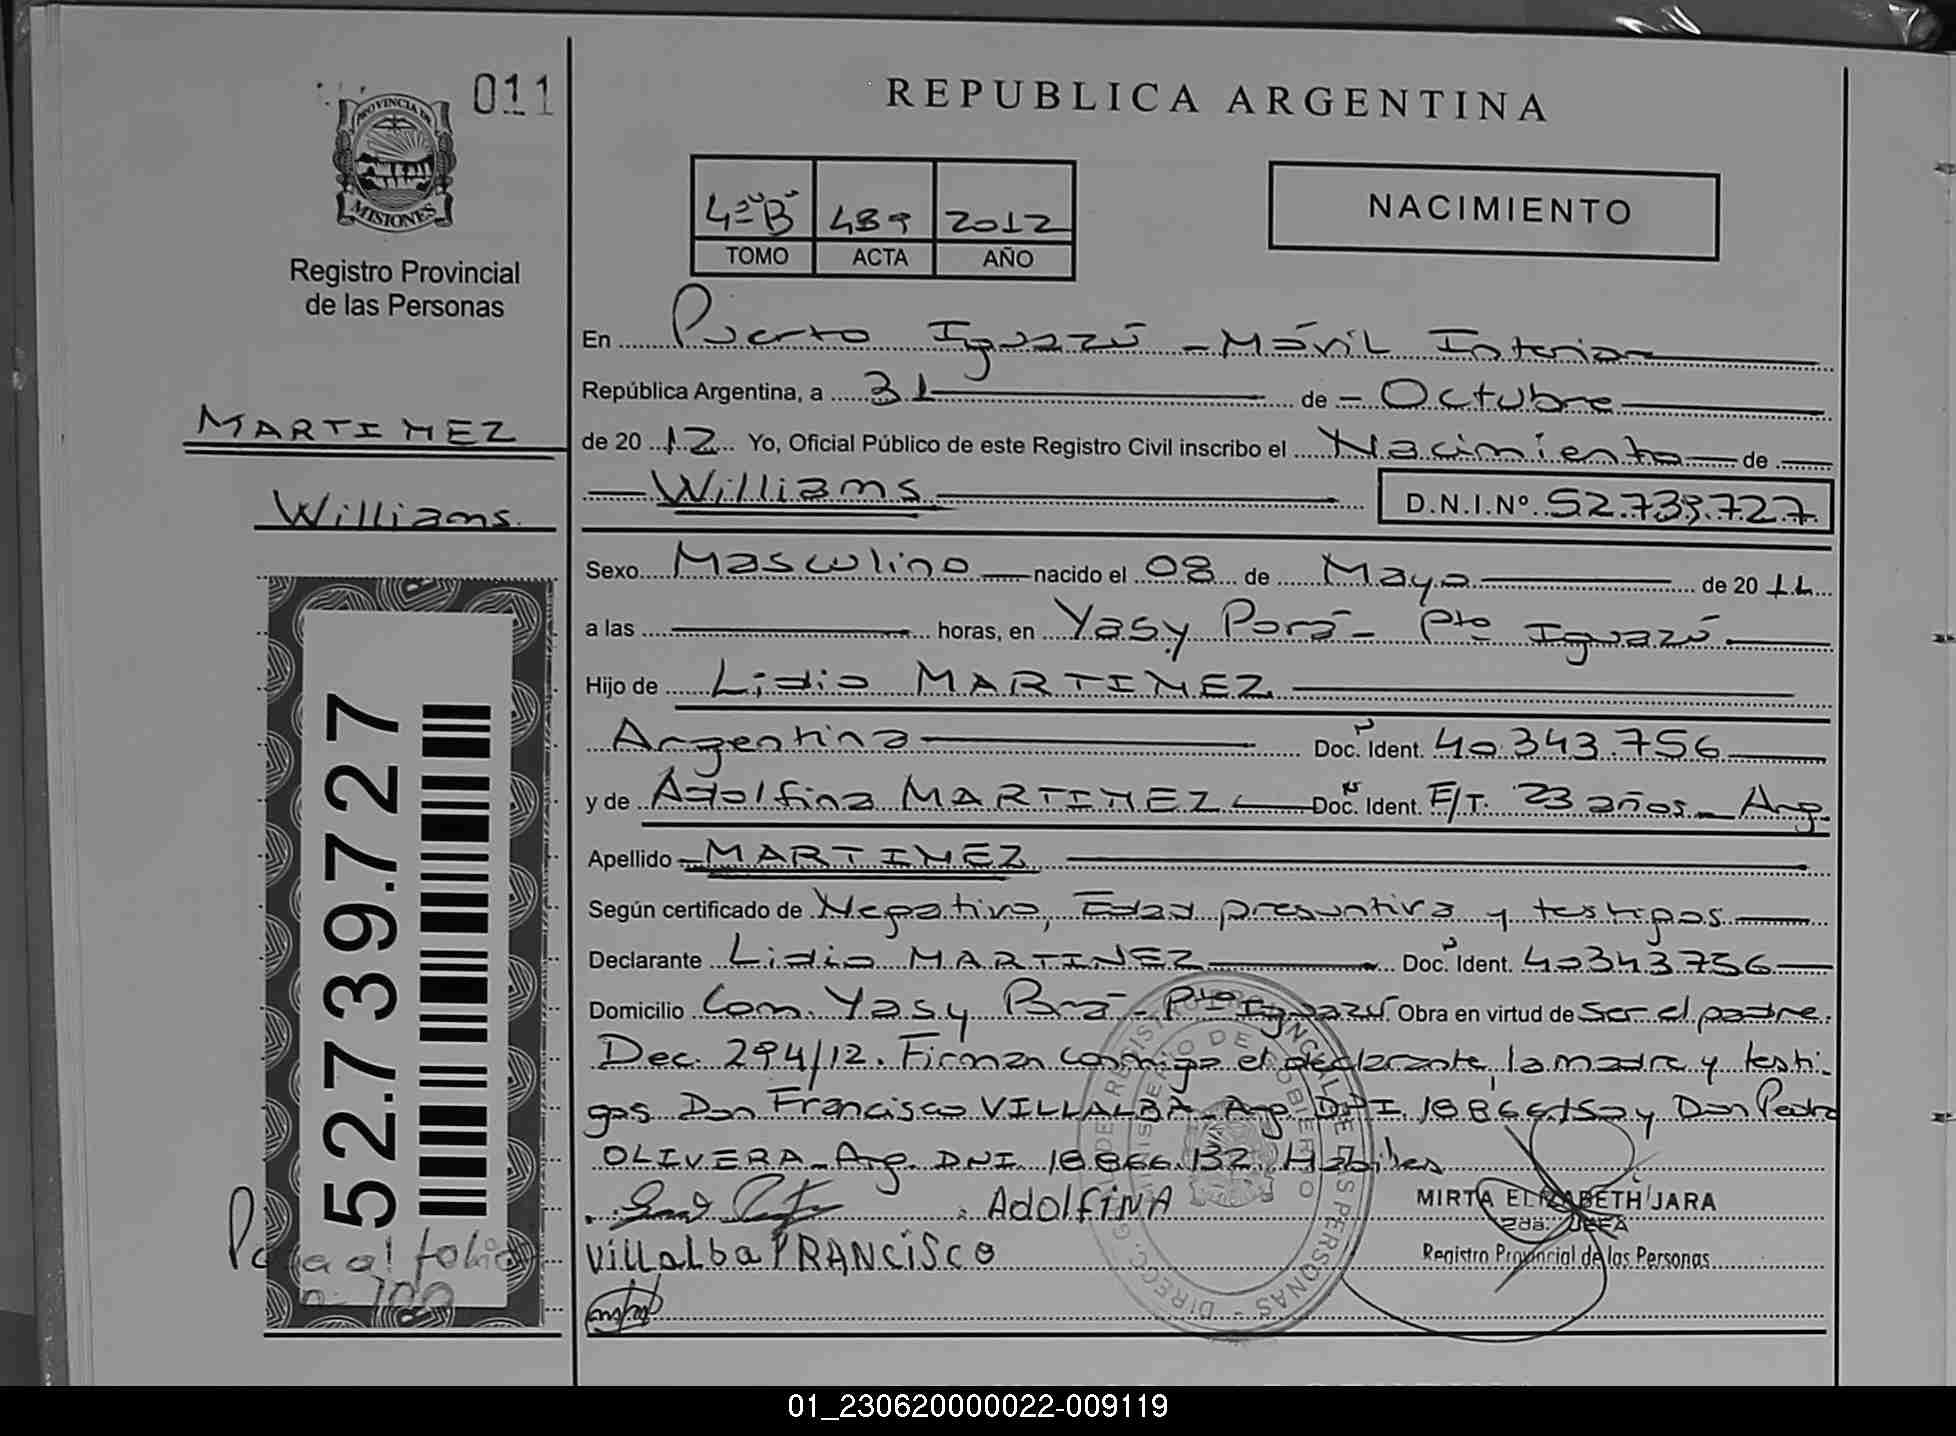 011
PROVINCIA DE
MISIONES
Registro Provincial
de las Personas
MARTINEZ
Williams
52.739.727
Pasa al folio
nº 100
REPUBLICA ARGENTINA
4º"B" 489 2012
TOMO ACTA AÑO
NACIMIENTO
En Puerto Iguazú - Móvil Interior
República Argentina, a 31 de - Octubre
de 2012 Yo, Oficial Público de este Registro Civil inscribo el Nacimiento de
Williams D.N.I.Nº 52.739.727
Sexo Masculino nacido el 08 de Mayo de 2011
a las horas, en Yasy Porá - Pto Iguazú
Hijo de Lidio MARTINEZ
Argentina Doc. Ident. 40.343.756
y de Adolfina MARTINEZ Doc. Ident. F/T. 23 años - Arg.
Apellido MARTINEZ
Según certificado de Negativo, Edad presuntiva y testigos
Declarante Lidio MARTINEZ Doc. Ident. 40343756
Domicilio Com. Yasy Porá - Pto Iguazú Obra en virtud de Ser el padre.
Dec. 294/12. Firman conmigo el declarante, la madre y testi-
gos Don Francisco VILLALBA - Arg. DNI 18866150 y Don Pedro
OLIVERA - Arg. DNI 18866.132 Hábiles
AdolfiNA
MIRTA ELIZABETH JARA
2da. JEFA
Registro Provincial de las Personas
Villalba FRANCiSCO
01_230620000022-009119